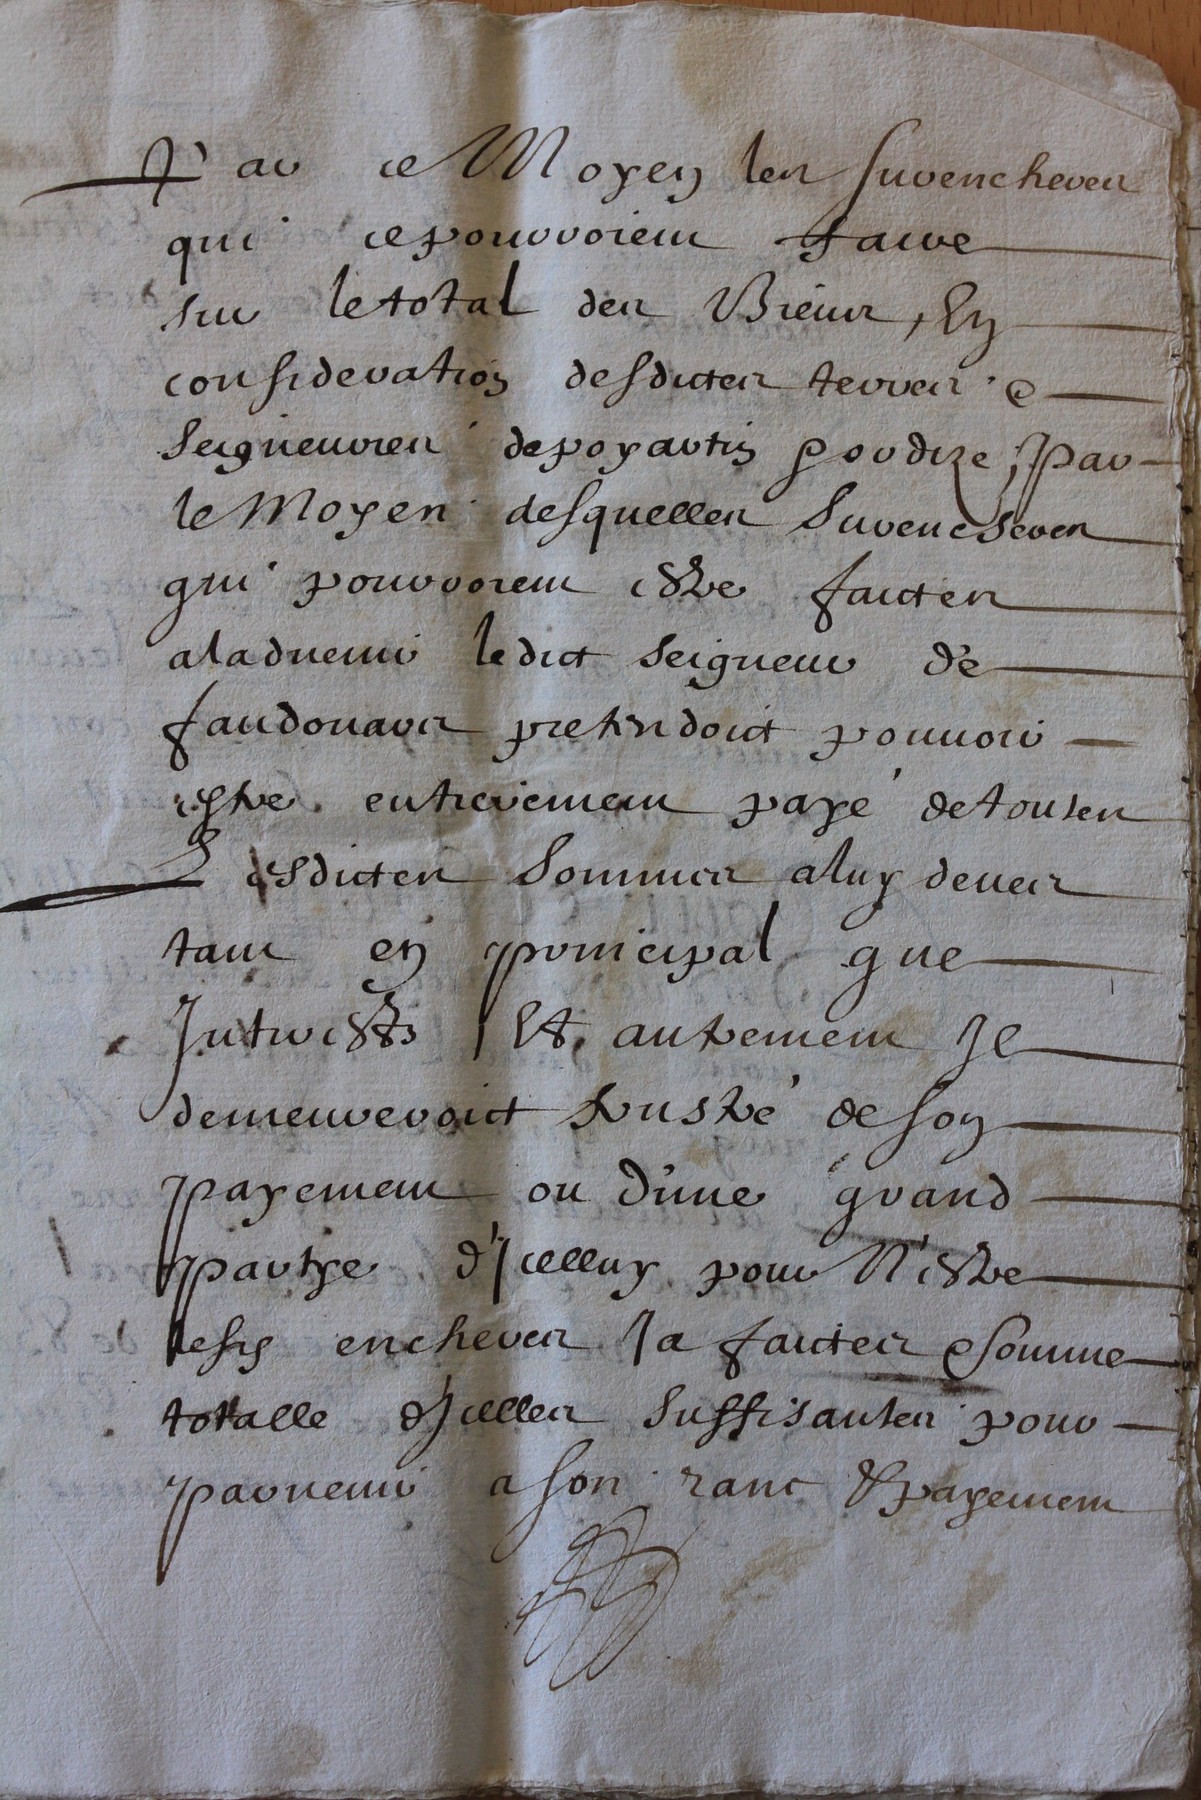 Par ce Moyen les surencheres
qui ce pourroient faire
sur le total des Biens, En
consideration desdictes terres &
Seigneuries de poyartin poudize, Par
le Moyen desquelles Surencheres
qui pourroient estre faictes
a ladvenir ledict Seigneur de
faudouars pretendoict pouvoir
estre entierement payé de toutes
Lesdictes Sommes a luy deues
tant en principal que
Interests, Et autrement Il
demeureroict frustré de son
payement ou d'une grand
partye d'Icelluy pour N'estre
lesd encheres Ja faictes & somme
totalle d'Icelles suffisantes pour
parvenir a son ranc & payement